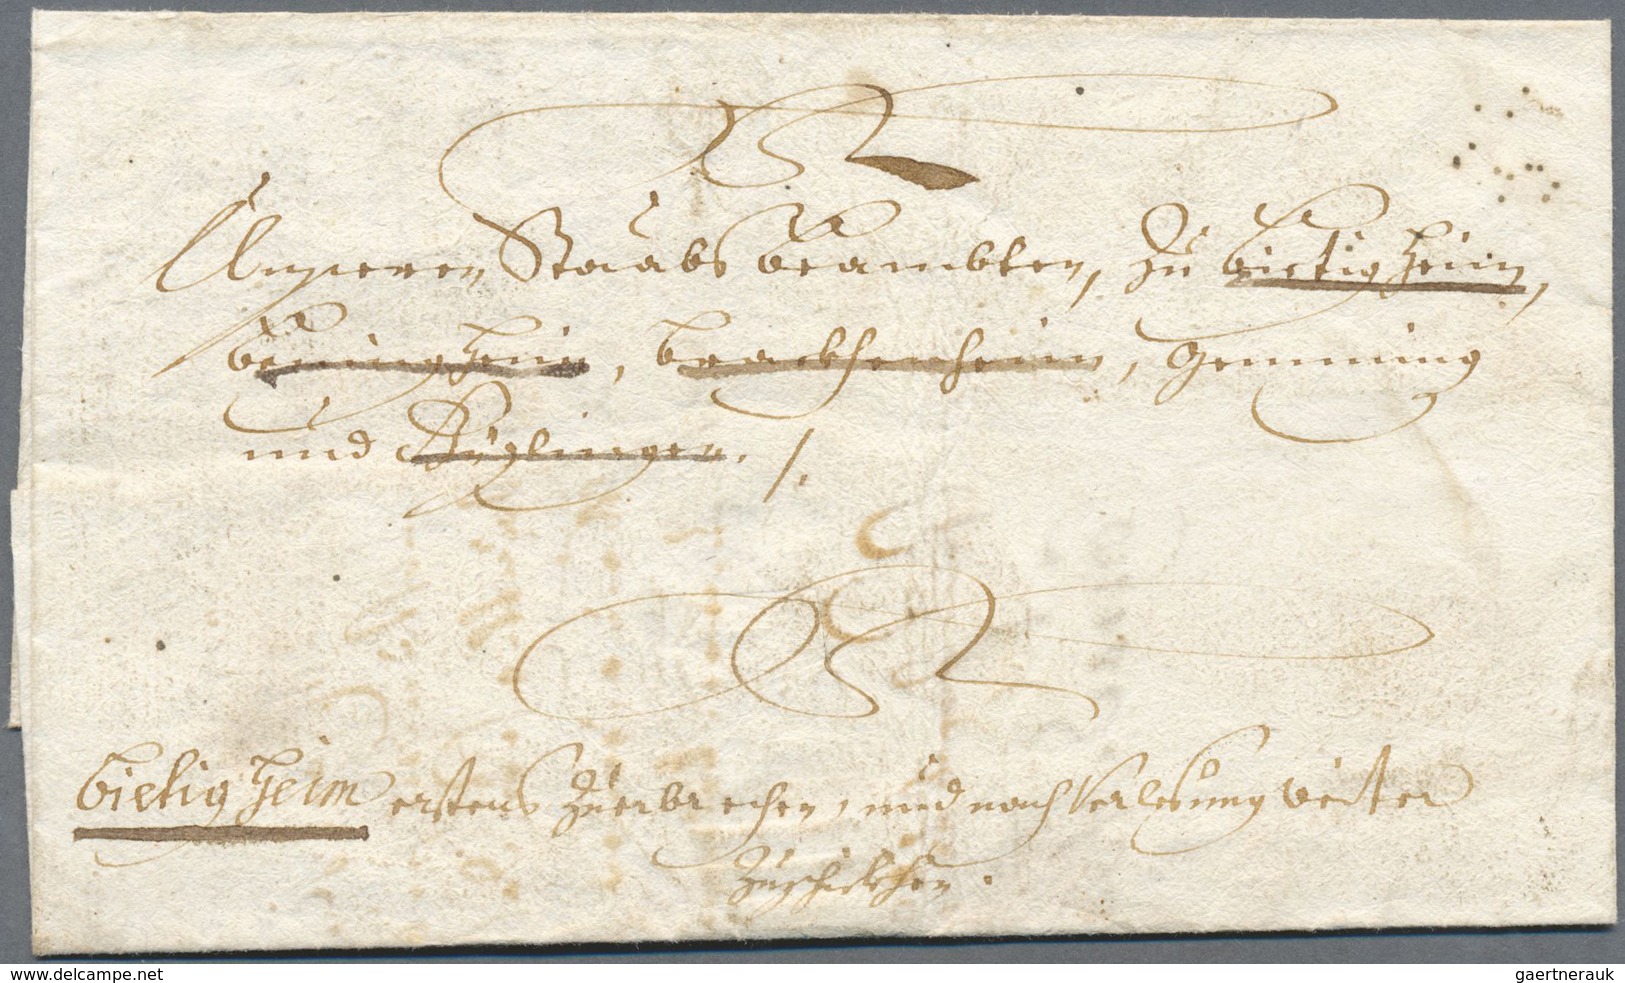 Unseren Staabs beambten, Zu bietigheim,
böningheim, brackhenheim, Gemming
und Küglingen. /.
bietigheim erstens Zuerbrechen, und nach Verlesung weiter
Zuschickhen.
www.delcampe.net
gaertnerauk